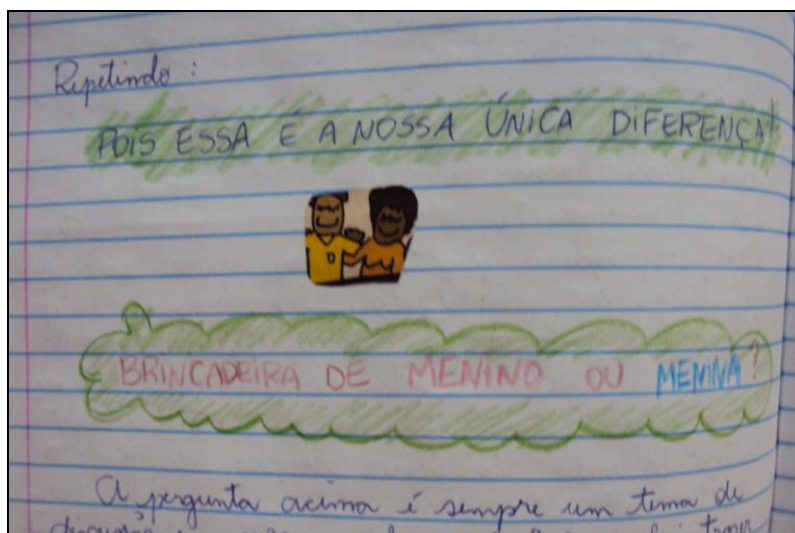 Repetindo :
POIS ESSA É A NOSSA ÚNICA DIFERENÇA!
BRINCADEIRA DE MENINO OU MENINA?
A pergunta acima é sempre um tema de
discussão